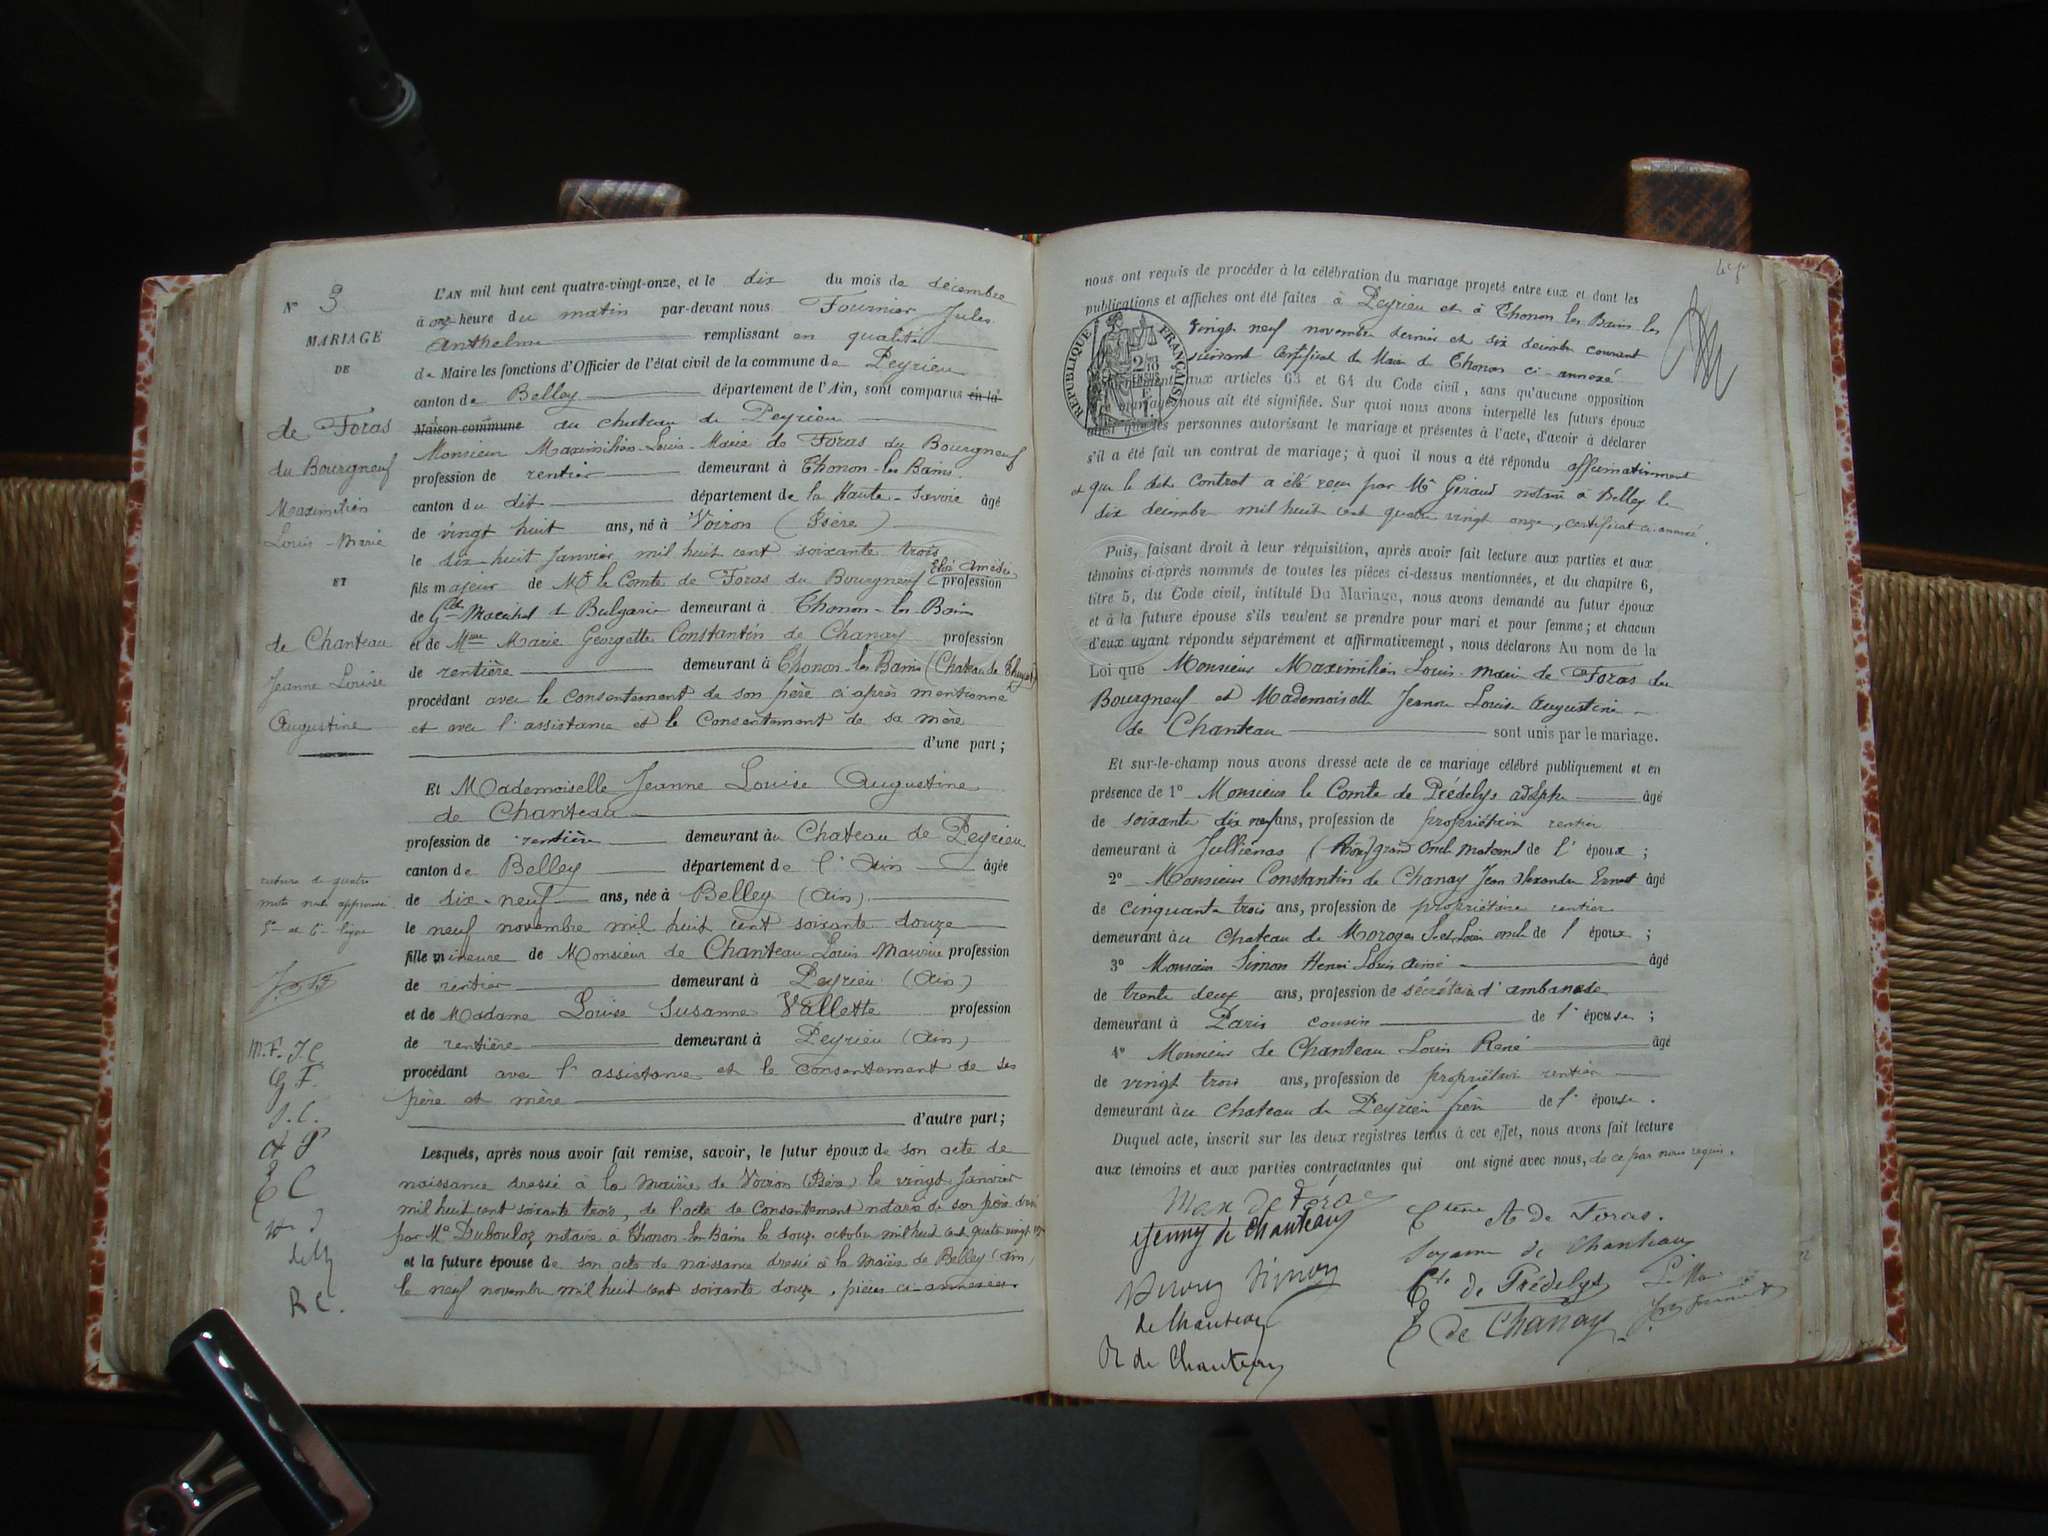 N° 3
MARIAGE
DE
de Foras
du Bourgneuf
Maximilien
Louis-Marie
ET
de Chanteau
Jeanne Louise
Augustine
rature de quatre
mots nuls approuvée
5me et 6me ligne
M.F. J.C.
G F.
S.C.
A P
E C
de Ch
R C.
L'AN mil huit cent quatre-vingt-onze, et le dix du mois de décembre
à onze heure du matin par-devant nous Fournier Jules
Anthelme remplissant en qualité
de Maire les fonctions d'Officier de l'état civil de la commune de Peyrieu
canton de Belley département de l'Ain, sont comparus en la
Maison commune au chateau de Peyrieu
Monsieur Maximilien-Louis-Marie de Foras du Bourgneuf
profession de rentier demeurant à Thonon-les Bains.
canton du dit département de la Haute-Savoie âgé
de vingt huit ans, né à Voiron (Isère)
le dix huit Janvier mil huit cent soixante trois
fils majeur de Mr le Comte de Foras du Bourgneuf Eloi Amédée profession
de Gd Maréchal de Bulgarie demeurant à Thonon-les Bains
et de Mme Marie Georgette Constantin de Chanay profession
de rentière demeurant à Thonon-les Bains (Chateau de Thuyset)
procédant avec le consentement de son père ci après mentionné
et avec l'assistance et le Consentement de sa mère
d'une part ;
Et Mademoiselle Jeanne Louise Augustine
de Chanteau
profession de rentière demeurant au Chateau de Peyrieu
canton de Belley département de l'Ain âgée
de dix-neuf ans, née à Belley (Ain).
le neuf novembre mil huit cent soixante douze
fille mineure de Monsieur de Chanteau Louis Maurice profession
de rentier demeurant à Peyrieu (Ain)
et de Madame Louise Susanne Vallette profession
de rentière demeurant à Peyrieu (Ain)
procédant avec l'assistance et le consentement de ses
père et mère
d'autre part ;
Lesquels, après nous avoir fait remise, savoir, le futur époux de son acte de
naissance dressé à la Mairie de Voiron (Isère) le vingt Janvier
mil huit cent soixante trois, de l'acte de Consentement notarié de son père dressé
par Me Dubouloz notaire à Thonon-les Bains le douze octobre mil huit cent quatre vingt onze
et la future épouse de son acte de naissance dressé à la Mairie de Belley (Ain)
le neuf novembre mil huit cent soixante douze, pièces ci-annexées
nous ont requis de procéder à la célébration du mariage projeté entre eux et dont les
publications et affiches ont été faites à Peyrieu et à Thonon les Bains les
vingt neuf novembre dernier et six décembre courant
suivant Certificat du Maire de Thonon ci-annexé
REPUBLIQUE FRANÇAISE
aux articles 63 et 64 du Code civil, sans qu'aucune opposition
mariage nous ait été signifiée. Sur quoi nous avons interpellé les futurs époux
ainsi que les personnes autorisant le mariage et présentes à l'acte, d'avoir à déclarer
s'il a été fait un contrat de mariage; à quoi il nous a été répondu affirmativement
et que le dit Contrat a été reçu par Me Géraud notaire à Belley le
dix décembre mil huit cent quatre vingt onze, certificat ci-annexé.
Puis, faisant droit à leur réquisition, après avoir fait lecture aux parties et aux
témoins ci-après nommés de toutes les pièces ci-dessus mentionnées, et du chapitre 6,
titre 5, du Code civil, intitulé Du Mariage, nous avons demandé au futur époux
et à la future épouse s'ils veulent se prendre pour mari et pour femme; et chacun
d'eux ayant répondu séparément et affirmativement, nous déclarons Au nom de la
Loi que Monsieur Maximilien Louis-Marie de Foras du
Bourgneuf et Mademoiselle Jeanne Louise Augustine
de Chanteau sont unis par le mariage.
Et sur-le-champ nous avons dressé acte de ce mariage célébré publiquement et en
présence de 1° Monsieur le Comte de Prédelys adolphe âgé
de soixante dix neuf ans, profession de propriétaire rentier
demeurant à Julliénas (Rhône) grand Oncle maternel de l'époux ;
2° Monsieur Constantin de Chanay Jean Alexandre Ernest âgé
de cinquante trois ans, profession de propriétaire rentier
demeurant au Chateau de Moroges S. et Loire oncle de l'époux ;
3° Monsieur Simon Henri Louis Aimé âgé
de trente deux ans, profession de secrétaire d'ambassade
demeurant à Paris cousin de l'épouse ;
4° Monsieur de Chanteau Louis René âgé
de vingt trois ans, profession de propriétaire rentier
demeurant au Chateau de Peyrieu frère de l'épouse.
Duquel acte, inscrit sur les deux registres tenus à cet effet, nous avons fait lecture
aux témoins et aux parties contractantes qui ont signé avec nous, de ce par nous requis.
Max de Foras
Ctesse A de Foras.
Jenny de Chanteau
Suzanne de Chanteau
Henry Simon
Cte de Prédelys
Le Maire
de Chanteau
E de Chanay
R de Chanteau